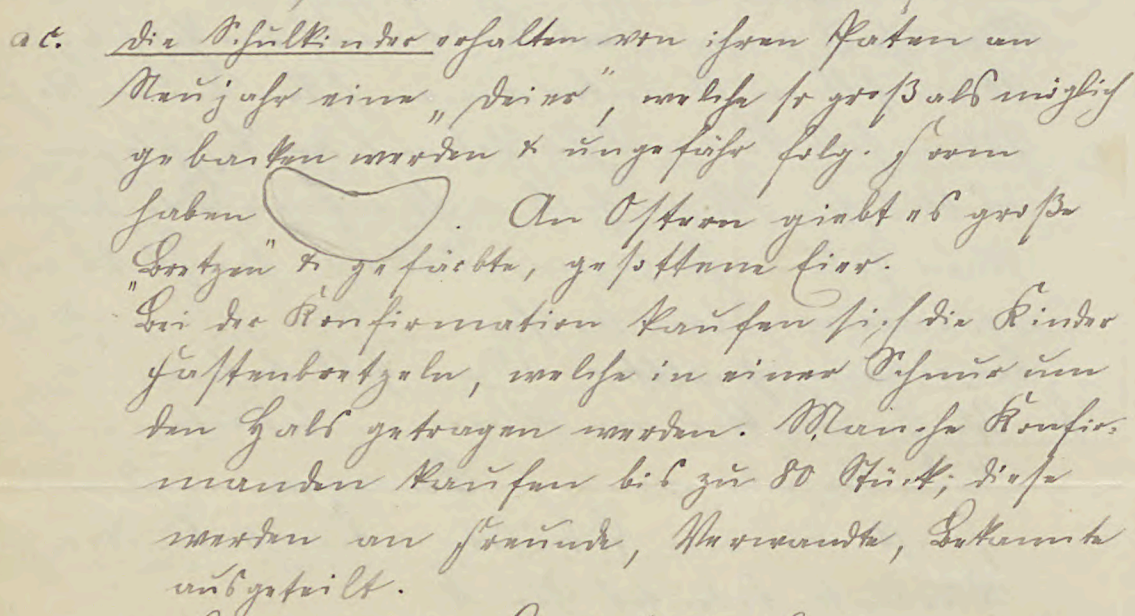 ac. Die Schulkinder erhalten von ihren Paten an
Neujahr eine „Deier", welche so groß als möglich
gebacken werden & ungefähr folg. Form
haben . An Ostern giebt es große
„Bretzen" & gefärbte, gesottene Eier.
Bei der Konfirmation kaufen sich die Kinder
Fastenbretzeln, welche in einer Schnur um
den Hals getragen werden. Manche Konfir-
manden kaufen bis zu 80 Stück; diese
werden an Freunde, Verwandte, Bekannte
ausgeteilt.